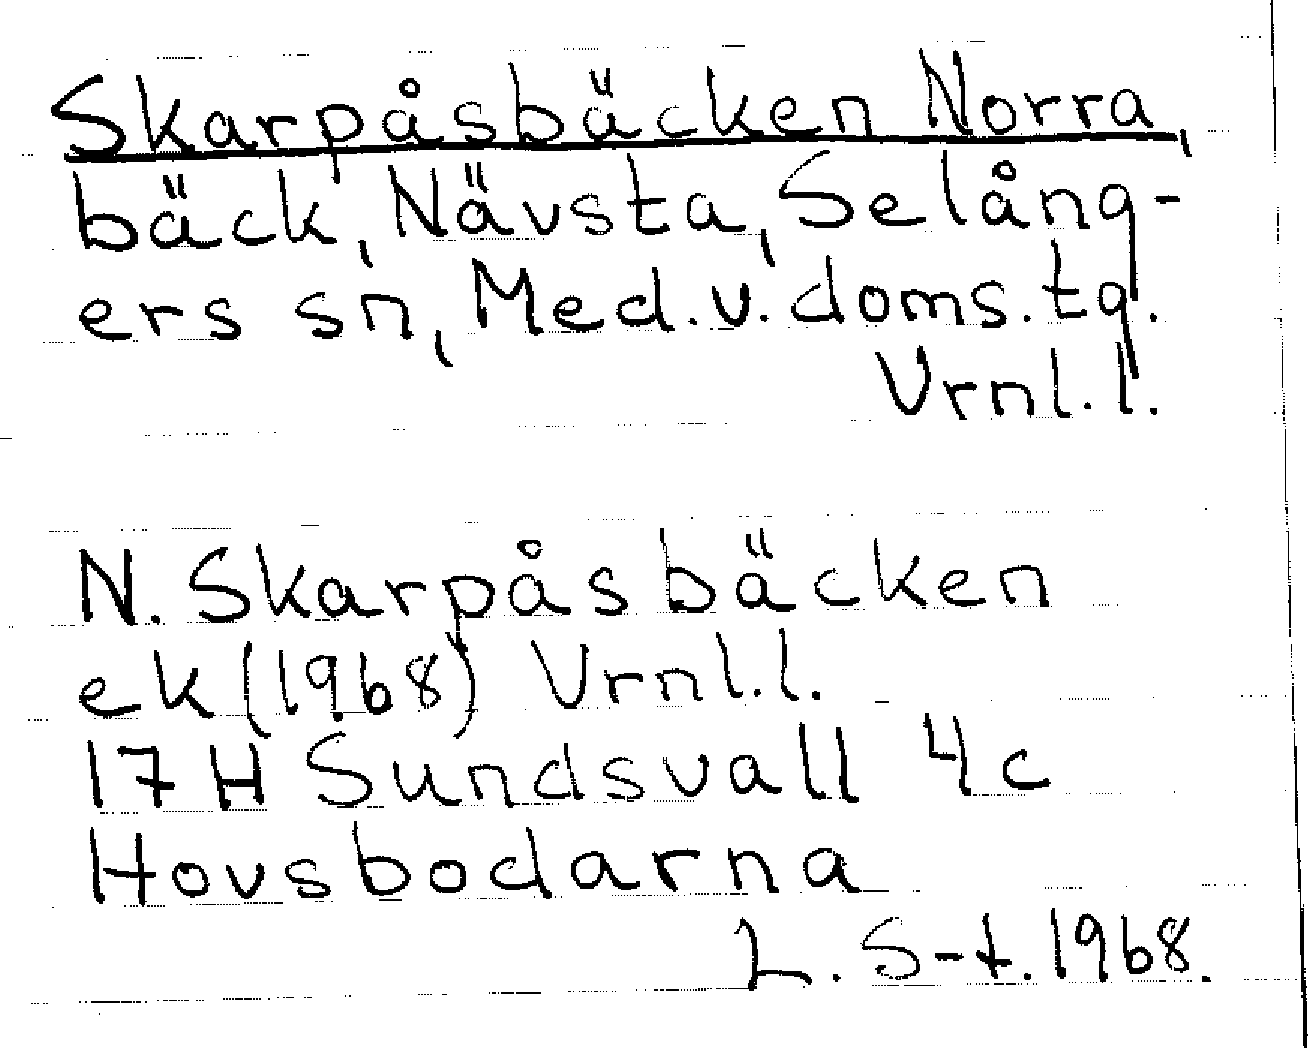 Skarpåsbäcken Norra,
bäck, Nävsta, Selång-
ers sn, Med.v.doms.tg.
Vrnl.l.
N. Skarpåsbäcken
ek (1968) Vrnl.l.
17 H Sundsvall 4c
Hovsbodarna
L. S-t. 1968.